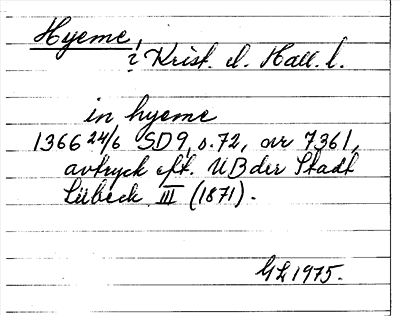 Hyeme,
i Krist. d. Hall. l.
in hyeme
1366 24/6 SD9, s.72, or 7361,
avtryck eft. UB der Stadt
Lübeck III (1871).
GL 1975.